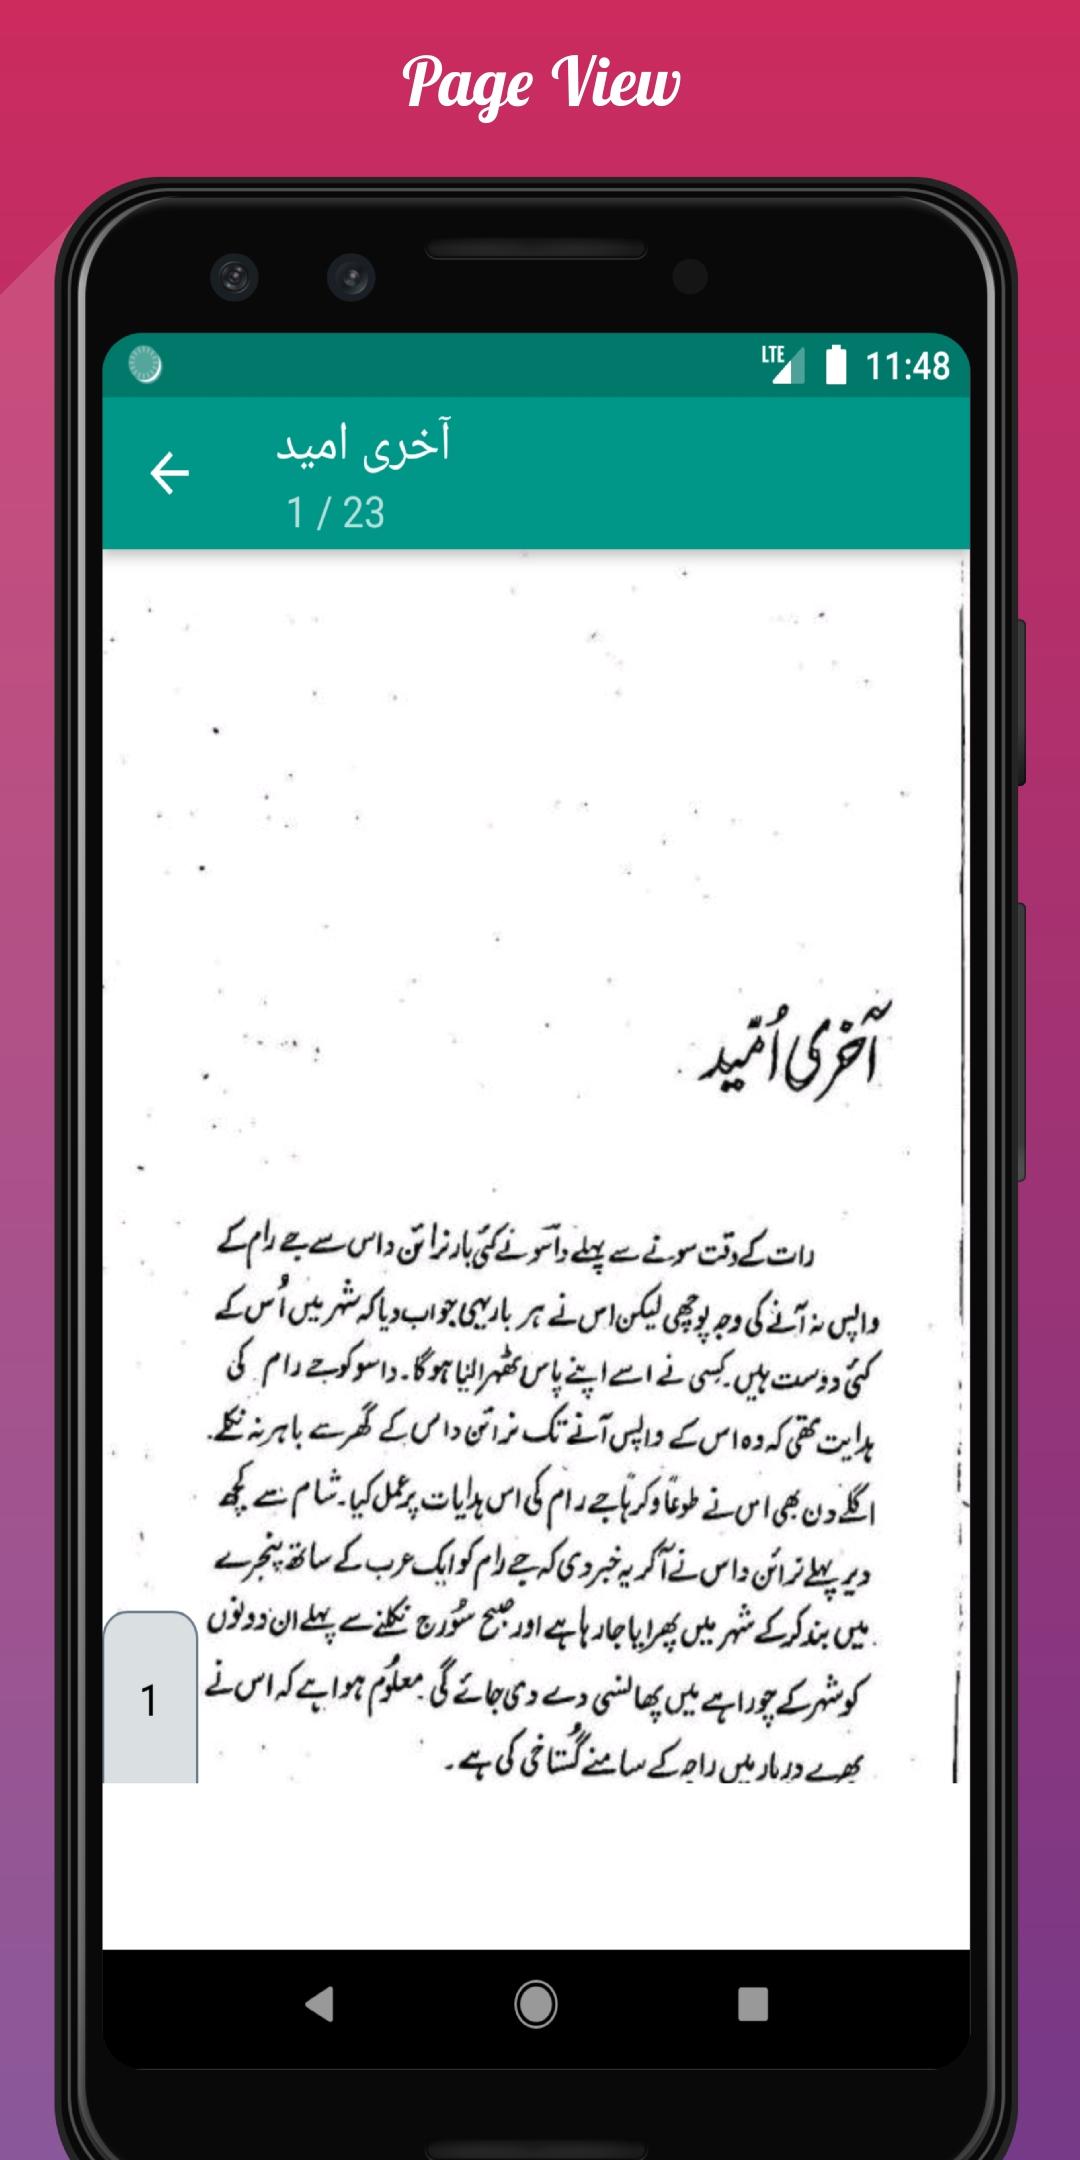 Page View
LTE 11:48
آخری امید
1 / 23
آخری اُمّید
رات کے وقت سونے سے پہلے داسو نے کئی بار نرائن داس سے جے رام کے
واپس نہ آنے کی وجہ پوچھی لیکن اس نے ہر بار یہی جواب دیا کہ شہر میں اُس کے
کئی دوست ہیں۔ کسی نے اسے اپنے پاس ٹھہرا لیا ہوگا۔ داسو کو جے رام کی
ہدایت تھی کہ وہ اس کے واپس آنے تک نرائن داس کے گھر سے باہر نہ نکلے۔
اگلے دن بھی اس نے طوعاً و کرہاً جے رام کی اس ہدایات پر عمل کیا۔ شام سے کچھ
دیر پہلے نرائن داس نے آ کر یہ خبر دی کہ جے رام کو ایک عرب کے ساتھ پنجرے
میں بند کرکے شہر میں پھرایا جا رہا ہے اور صبح سُورج نکلنے سے پہلے ان دونوں
کو شہر کے چوراہے میں پھانسی دے دی جائے گی۔ معلُوم ہوا ہے کہ اس نے
بھرے دربار میں راجہ کے سامنے گُستاخی کی ہے۔
1